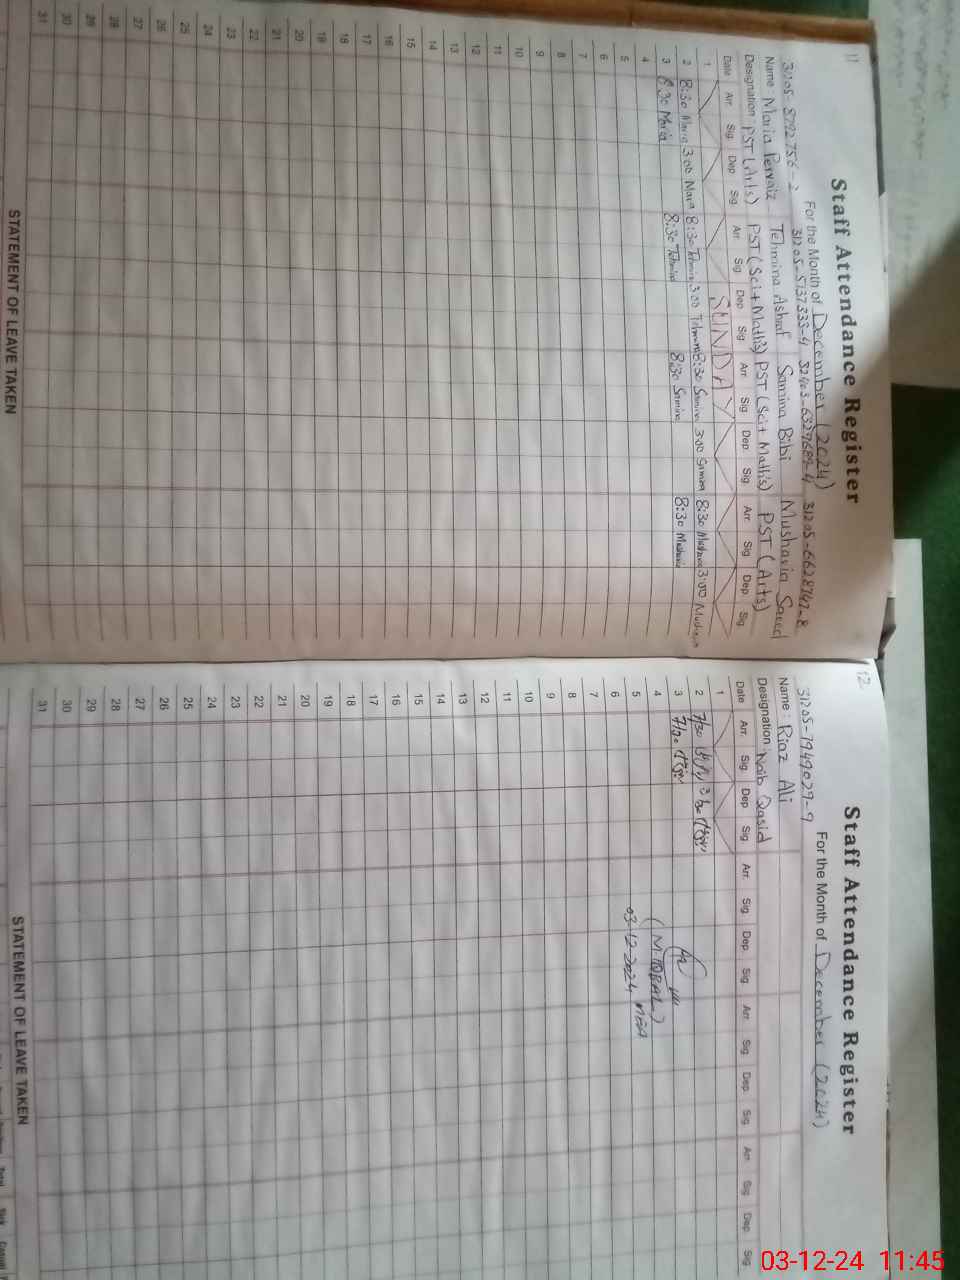 11
Staff Attendance Register
For the Month of December (2024)
31205-8792756-2 31205-5737333-4 32403-6327689-4 31205-6628747-8
Name : Maria Pervaiz Tehmina Ashraf Samina Bibi Musharia Saeed
Designation : PST (Arts) PST (Sci+Maths) PST (Sci+Maths) PST (Arts)
Date Arr. Sig. Dep Sig. Arr Sig. Dep Sig. Arr Sig. Dep Sig. Arr Sig. Dep Sig.
1 SUNDAY
2 8:30 Maria 3:00 Maria 8:30 Tehmina 3:00 Tehmina 8:30 Samina 3:00 Samina 8:30 3:00
3 8:30 Maria 8:30 Tehmina 8:30 Samina 8:30
4
5
6
7
8
9
10
11
12
13
14
15
16
17
18
19
20
21
22
23
24
25
26
27
28
29
30
31
STATEMENT OF LEAVE TAKEN
12
Staff Attendance Register
For the Month of December (2024)
31205-7949029-9
Name : Riaz Ali
Designation : Naib Qasid
Date Arr. Sig. Dep Sig. Arr. Sig. Dep Sig. Arr Sig. Dep Sig. Arr Sig. Dep Sig.
1
2 7/30
3 7/30
4
5
6
7
8
9
10
11
12
13
14
15
16
17
18
19
20
21
22
23
24
25
26
27
28
29
30
31
(M. IQBAL)
03-12-2024 MEA
STATEMENT OF LEAVE TAKEN
03-12-24 11:45